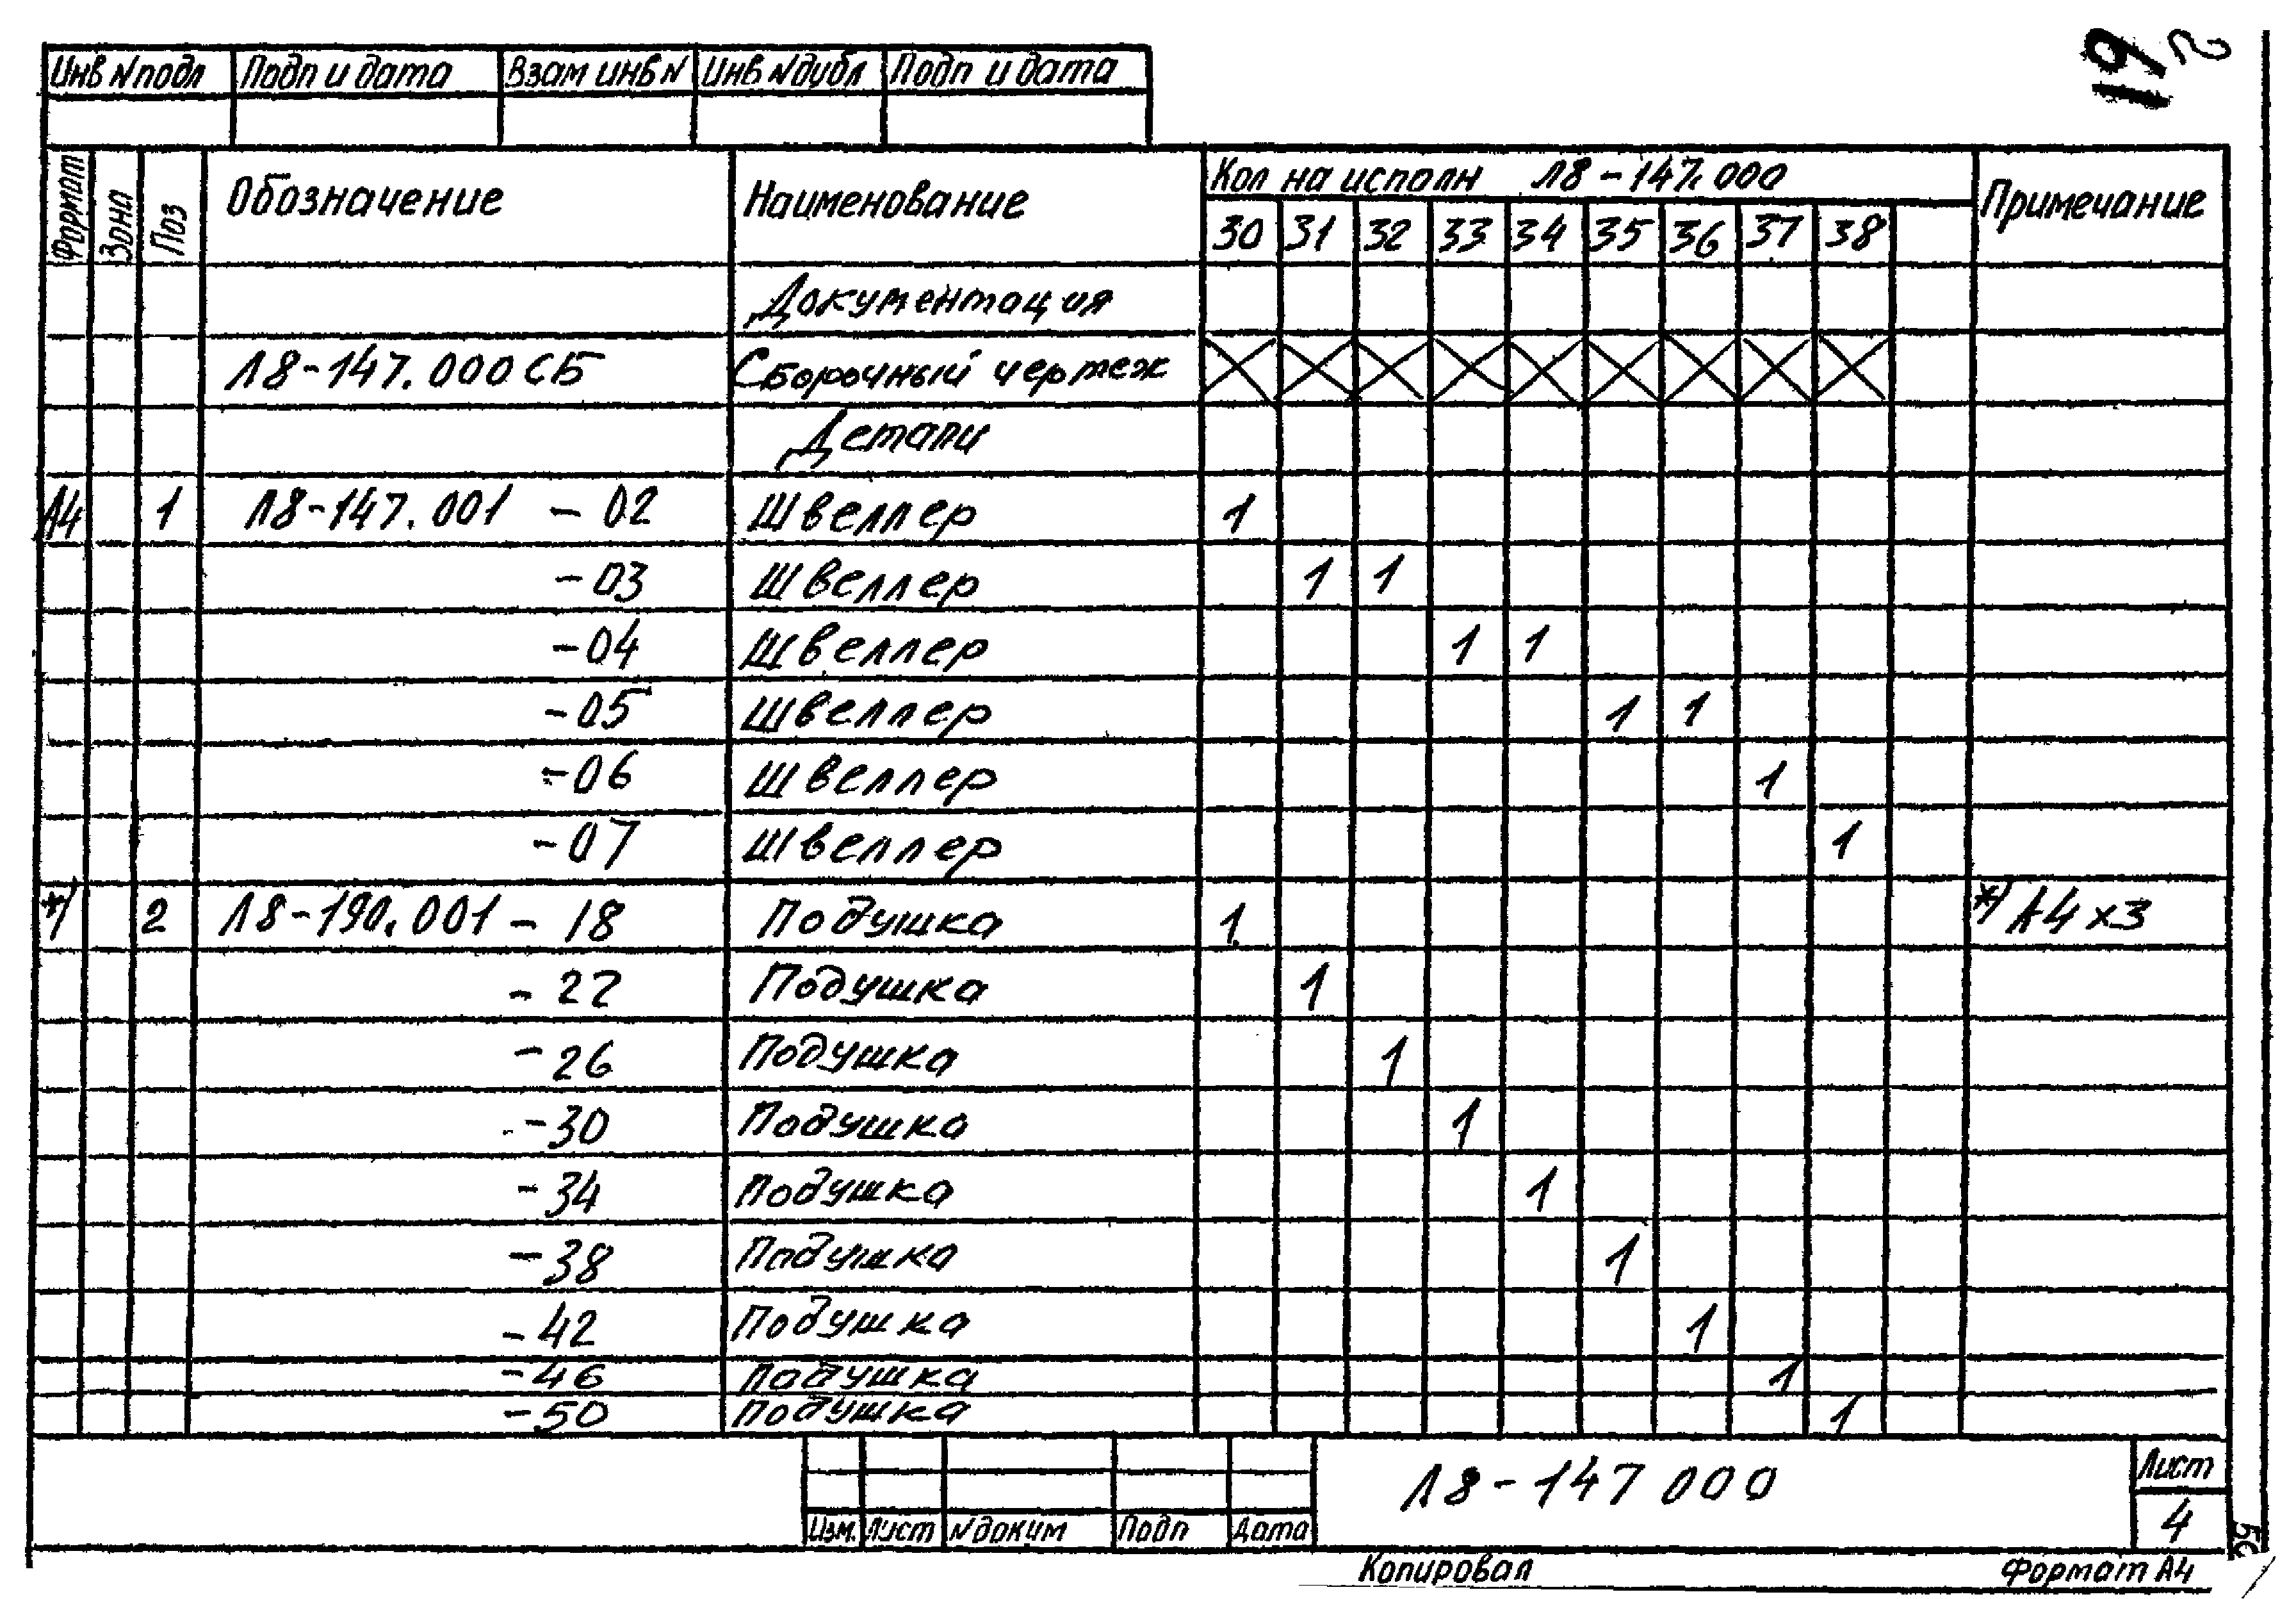 19
2
Инв N подл Подп и дата Взам инв N Инв N дубл Подп и дата
Формат Зона Поз Обозначение Наименование Кол на исполн Л8-147.000 Примечание
30 31 32 33 34 35 36 37 38
Документация
Л8-147.000 СБ Сборочный чертеж
Детали
А4 1 Л8-147.001 - 02 Швеллер 1
-03 Швеллер 1 1
-04 Швеллер 1 1
-05 Швеллер 1 1
-06 Швеллер 1
-07 Швеллер 1
*) 2 Л8-190.001 - 18 Подушка 1 *) А4х3
- 22 Подушка 1
- 26 Подушка 1
-30 Подушка 1
-34 Подушка 1
-38 Подушка 1
-42 Подушка 1
-46 Подушка 1
-50 Подушка 1
Л8-147 000 Лист
4
Изм. Лист N докум Подп Дата
Копировал Формат А4